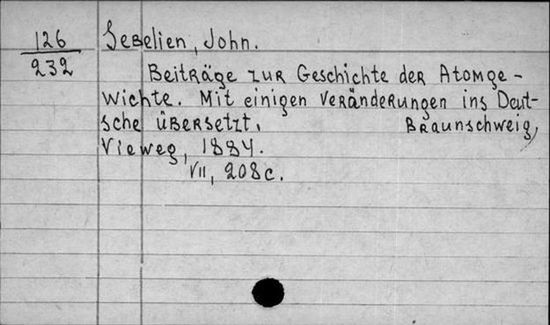 126
232
Sebelien, John.
Beiträge zur Geschichte der Atomge-
wichte. Mit einigen Veränderungen ins Deut-
sche übersetzt. Braunschweig,
Vieweg, 1884.
VII, 208c.